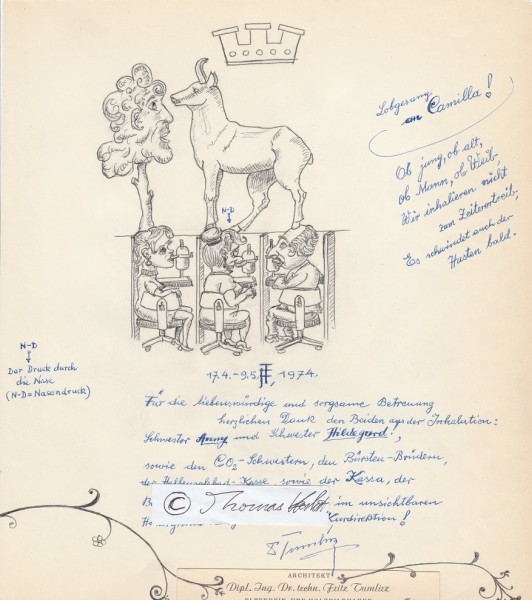 Lobgesang
an Camilla!
Ob jung, ob alt,
Ob Mann, ob Weib,
Wir inhalieren nicht
zum Zeitvertreib;
Es schwindet auch der
Husten bald.
N-D
N-D
Der Druck durch
die Nase
(N-D=Nasendruck)
17.4.-9.5. 1974.
Für die liebenswürdige und sorgsame Betreuung
herzlichen Dank den Beiden aus der Inhalation:
Schwester Anny und Schwester Hildegard.,
sowie den CO2-Schwestern, den Bürsten-Brüdern,
der Hallenbad-Kasse sowie der Kassa, der
im unsichtbaren
© Thomas
Curdirektion!
F Tumlirz
ARCHITEKT
Dipl. Ing. Dr. techn. Fritz Tumlirz